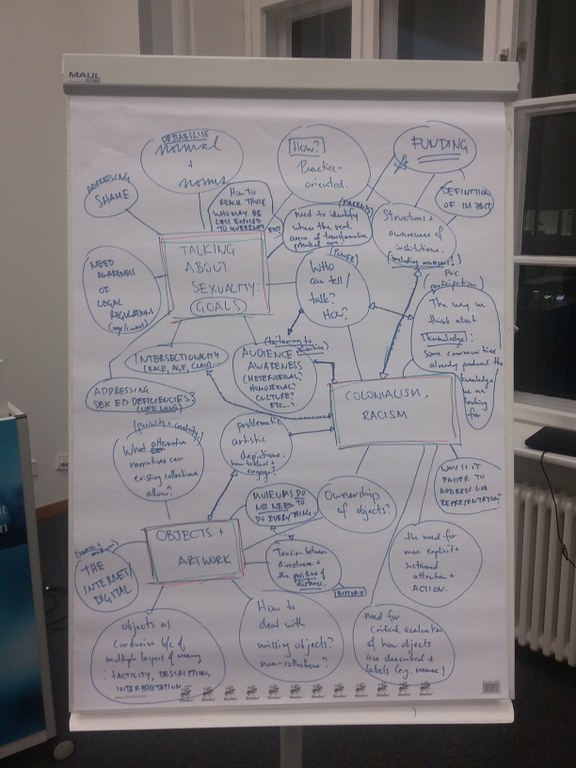 MAUL
DESTABILISE
normal
+
norms
ADDRESSING
SHAME
HOW TO
REACH THOSE
WHO MAY BE
LESS EXPOSED
TO
How?
Practice-
oriented.
FUNDING
DEFINITION
OF IMPACT
need to identify
where the real
areas of transformative
potential are
Structures +
awareness of
institutions.
(including museums?)
TALKING
ABOUT
SEXUALITY:
GOALS
NEED
AWARENESS
OF
LEGAL
REGULATIONS
(age/consent)
(Power)
Who
can tell/
talk?
How?
participation)
The way we
think about
Knowledge:
some communities
already produced the
knowledge we are
looking for
INTERSECTIONALITY
(RACE, AGE, CLASS)
(tailoring to
AUDIENCE
AWARENESS
(HETEROSEXUAL?
HOMOSEXUAL?
CULTURE?
ETC...?
ADDRESSING
SEX ED DEFICIENCIES?
(LIFE LONG)
COLONIALISM,
RACISM
What alternative
narratives can
existing collections
allow?
problematic
artistic
depictions.
how to read +
engage?
WHY IS IT
EASIER TO
ADDRESS VIA
REPRESENTATION?
MUSEUMS DO
NO NEED TO
DO EVERYTHING.
Ownership
of objects?
OBJECTS +
ARTWORK
THE
INTERNET/
DIGITAL
Tension between
directness +
the positives of
distance.
HISTORY
the need for
more explicit +
sustained
attention +
ACTION.
objects as
conducive b/c of
multiple layers of meaning
: TACTILITY, DESCRIPTION,
INTERPRETATION...
How to
deal with
missing objects?
non-collections?
need for
critical evaluation
of how objects
are described +
labels (e.g. names)